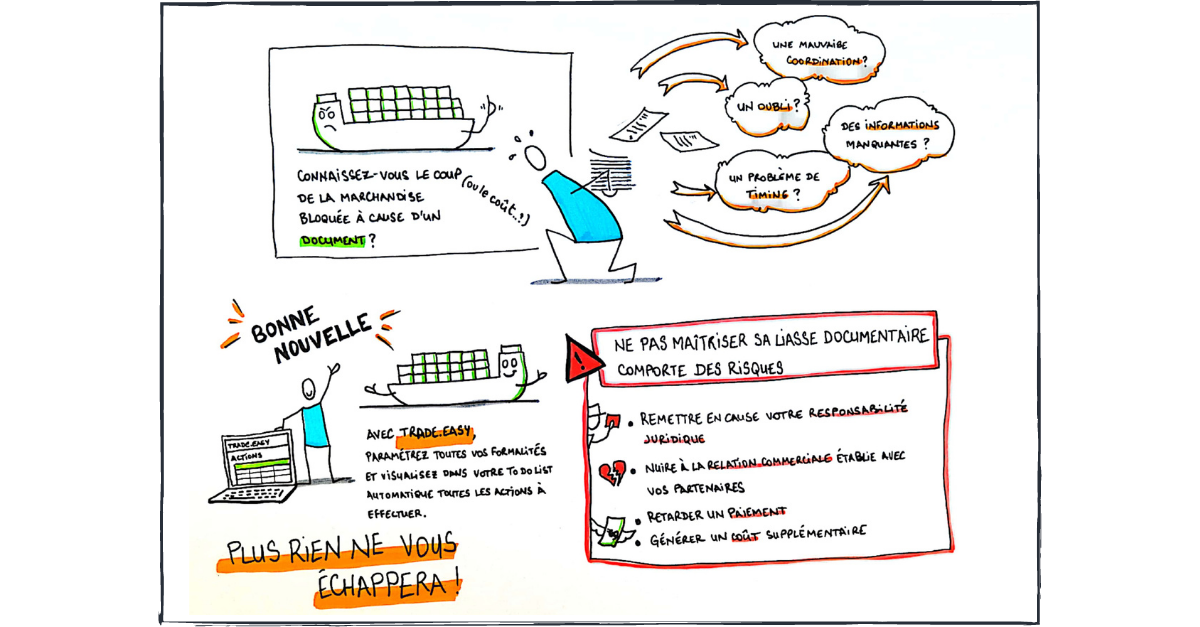 CONNAISSEZ-VOUS LE COUP
(ou le coût..!)
DE LA MARCHANDISE
BLOQUÉE À CAUSE D'UN
DOCUMENT ?
UNE MAUVAISE
COORDINATION ?
UN OUBLI ?
DES INFORMATIONS
MANQUANTES ?
UN PROBLÈME DE
TIMING ?
BONNE
NOUVELLE
TRADE.EASY
ACTIONS
AVEC TRADE.EASY,
PARAMÉTREZ TOUTES VOS FORMALITÉS
ET VISUALISEZ DANS VOTRE TO DO LIST
AUTOMATIQUE TOUTES LES ACTIONS À
EFFECTUER.
PLUS RIEN NE VOUS
ÉCHAPPERA !
!
NE PAS MAÎTRISER SA LIASSE DOCUMENTAIRE
COMPORTE DES RISQUES
• REMETTRE EN CAUSE VOTRE RESPONSABILITÉ
JURIDIQUE
• NUIRE À LA RELATION COMMERCIALE ÉTABLIE AVEC
VOS PARTENAIRES
• RETARDER UN PAIEMENT
• GÉNÉRER UN COÛT SUPPLÉMENTAIRE